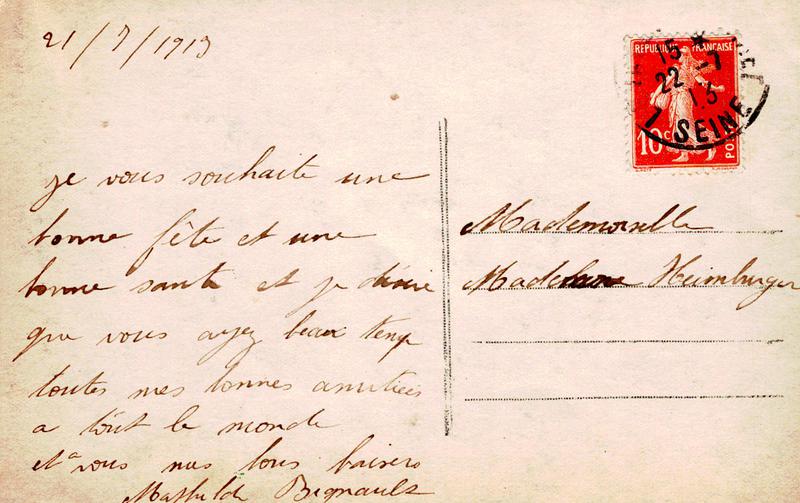 21/7/1913
REPUBLIQUE FRANÇAISE
10c
15
22 -7
13
SEINE
je vous souhaite une
bonne fête et une
bonne santé et je désire
que vous ayez beaux temp
toutes mes bonnes amitiées
a tout le monde
et a vous mes bons baisers
Mathilde
Mademoiselle
Madeleine Heimburger